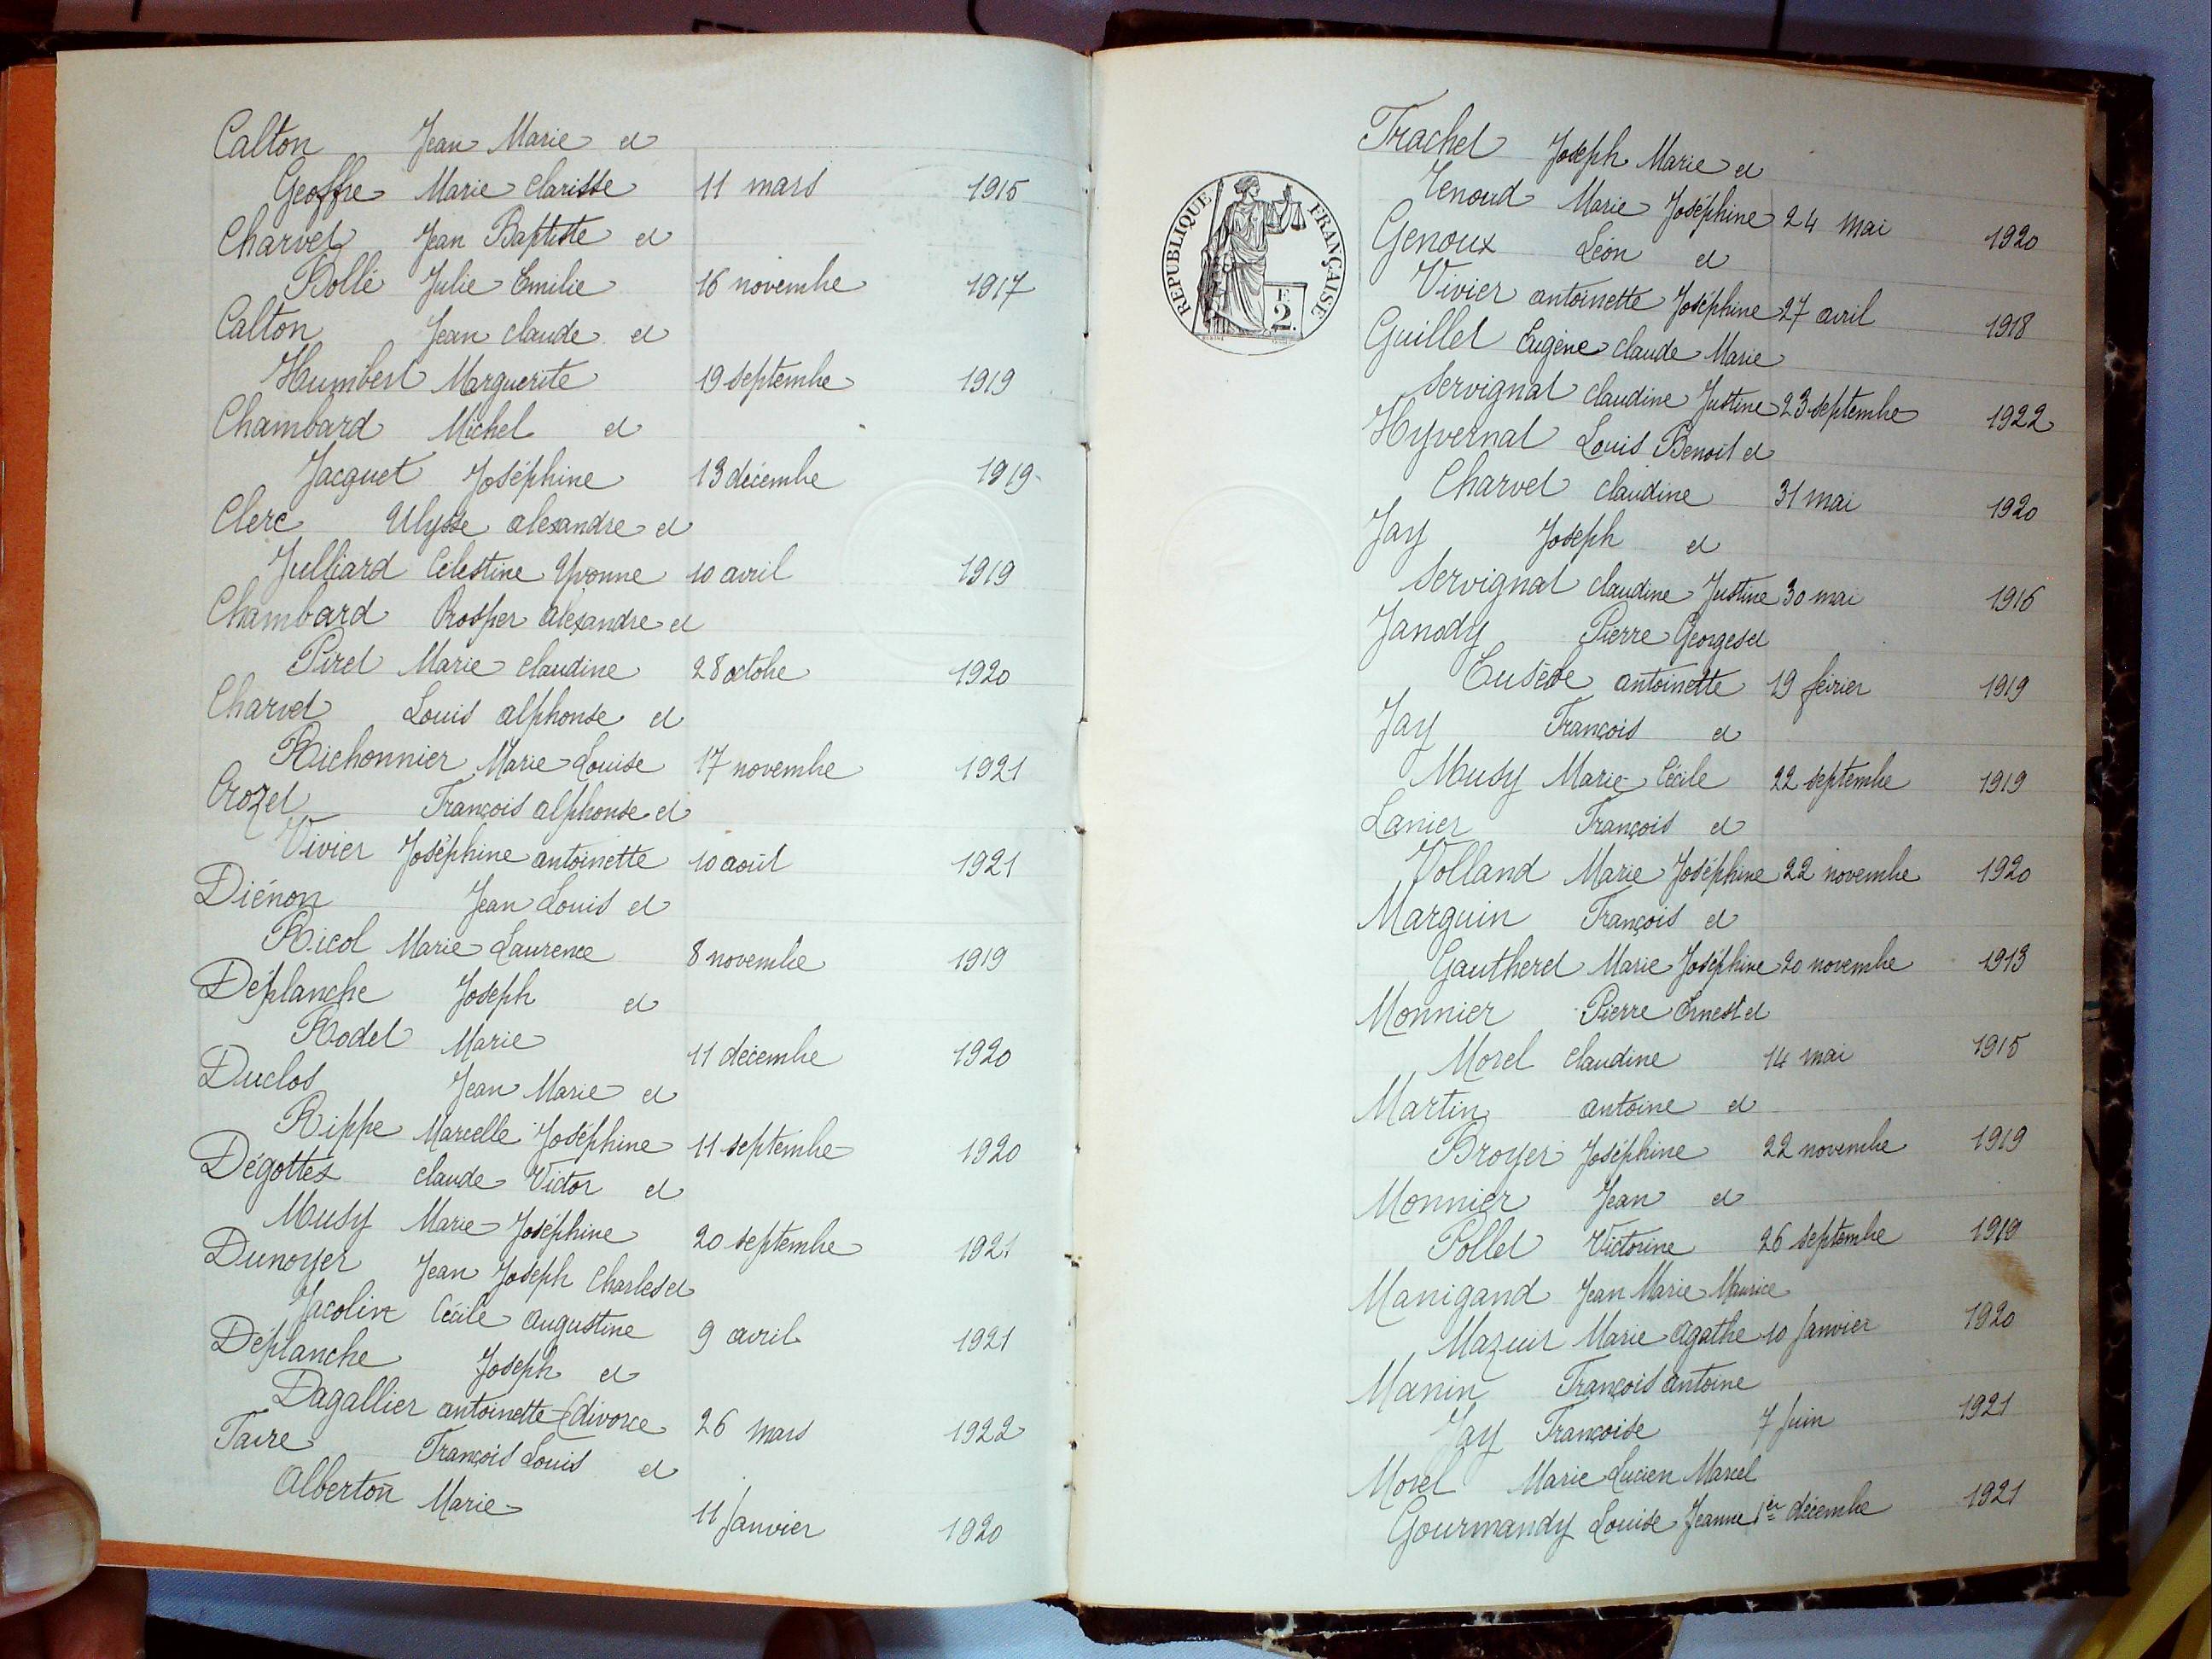 Calton Jean Marie et
Geoffre Marie Clarisse 11 mars 1915
Charvet Jean Baptiste et
Bollé Julie Emilie 16 novembre 1917
Calton Jean claude et
Humbert Marguerite 19 septembre 1919
Chambard Michel et
Jacquet Joséphine 13 décembre 1919
Clerc Ulysse alexandre et
Julliard Célestine Yvonne 10 avril 1919
Chambard Prosper alexandre et
Piret Marie claudine 28 octobre 1920
Charvet Louis alphonse et
Richonnier Marie Louise 17 novembre 1921
Crozet François alphonse et
Vivier Joséphine antoinette 10 août 1921
Diénon Jean Louis et
Ricol Marie Laurence 8 novembre 1919
Déplanche Joseph et
Rodet Marie 11 décembre 1920
Duclos Jean Marie et
Rippe Marcelle Joséphine 11 septembre 1920
Dégottex claude Victor et
Musy Marie Joséphine 20 septembre 1921
Dunoyer Jean Joseph Charles et
Jacolin Cécile augustine 9 avril 1921
Déplanche Joseph et
Dagallier antoinette (divorce 26 mars 1922
Faire François Louis et
Alberton Marie 11 Janvier 1920
RÉPUBLIQUE FRANÇAISE
F.
2.
Frachet Joseph Marie et
Tenoud Marie Joséphine 24 mai 1920
Genoux Léon et
Vivier antoinette Joséphine 27 avril 1918
Guillet Eugène claude Marie
Servignat claudine Justine 23 septembre 1922
Hyvernat Louis Benoit et
Charvet claudine 31 mai 1920
Jay Joseph et
Servignat claudine Justine 30 mai 1916
Janody Pierre Georges et
Eusèbe antoinette 19 février 1919
Jay François et
Musy Marie Cécile 22 septembre 1919
Lanier François et
Volland Marie Joséphine 22 novembre 1920
Marguin François et
Gautheret Marie Joséphine 20 novembre 1913
Monnier Pierre Ernest et
Morel Claudine 14 mai 1915
Martin antoine et
Broyer Joséphine 22 novembre 1919
Monnier Jean et
Pollet Victorine 26 septembre 1919
Manigand Jean Marie Maurice
Mazuir Marie agathe 10 Janvier 1920
Manin François antoine
Jay Françoise 7 Juin 1921
Morel Marie Lucien Marcel
Gourmandy Louise Jeanne 1er décembre 1921